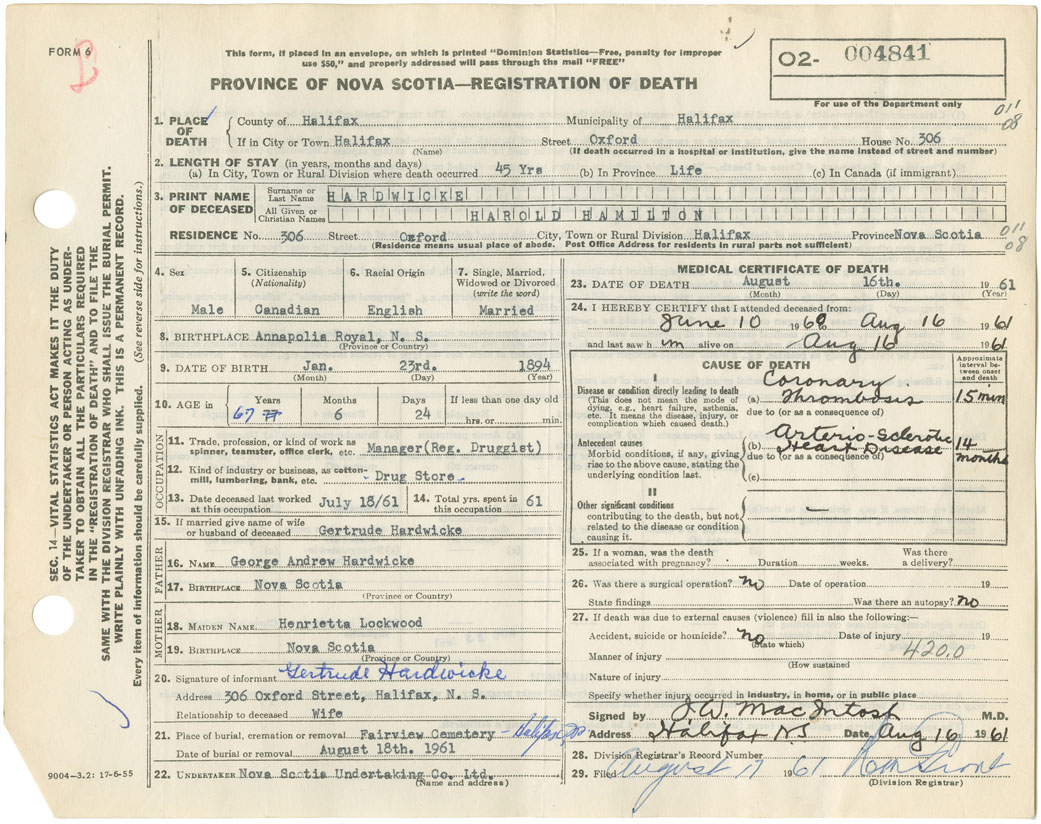 FORM 6
B
This form, if placed in an envelope, on which is printed "Dominion Statistics—Free, penalty for improper
use $50," and properly addressed will pass through the mail "FREE"
O2- 004841
For use of the Department only
PROVINCE OF NOVA SCOTIA—REGISTRATION OF DEATH
011
08
1. PLACE OF DEATH { County of Halifax Municipality of Halifax
If in City or Town Halifax Street Oxford House No. 306
(Name) (If death occurred in a hospital or institution, give the name instead of street and number)
2. LENGTH OF STAY (in years, months and days)
(a) In City, Town or Rural Division where death occurred 45 Yrs (b) In Province Life (c) In Canada (if immigrant)
3. PRINT NAME OF DECEASED { Surname or Last Name HARDWICKE
All Given or Christian Names HAROLD HAMILTON
RESIDENCE No. 306 Street Oxford City, Town or Rural Division Halifax Province Nova Scotia
011
08
(Residence means usual place of abode. Post Office Address for residents in rural parts not sufficient)
4. Sex 5. Citizenship (Nationality) 6. Racial Origin 7. Single, Married, Widowed or Divorced (write the word)
Male Canadian English Married
8. BIRTHPLACE Annapolis Royal, N. S.
(Province or Country)
9. DATE OF BIRTH Jan. 23rd. 1894
(Month) (Day) (Year)
10. AGE in { Years Months Days If less than one day old
67 77 6 24 hrs. or min.
OCCUPATION
11. Trade, profession, or kind of work as
spinner, teamster, office clerk, etc. Manager(Reg. Druggist)
12. Kind of industry or business, as cotton-
mill, lumbering, bank, etc. - Drug Store
13. Date deceased last worked at this occupation July 18/61 14. Total yrs. spent in this occupation 61
15. If married give name of wife
or husband of deceased Gertrude Hardwicke
FATHER
16. NAME George Andrew Hardwicke
17. BIRTHPLACE Nova Scotia
(Province or Country)
MOTHER
18. MAIDEN NAME Henrietta Lockwood
19. BIRTHPLACE Nova Scotia
(Province or Country)
20. Signature of informant Gertrude Hardwicke
Address 306 Oxford Street, Halifax, N. S.
Relationship to deceased Wife
21. Place of burial, cremation or removal Fairview Cemetery - Halifax,
Date of burial or removal August 18th. 1961
22. UNDERTAKER Nova Scotia Undertaking Co. Ltd.
(Name and address)
MEDICAL CERTIFICATE OF DEATH
23. DATE OF DEATH August 16th. 1961
(Month) (Day) (Year)
24. I HEREBY CERTIFY that I attended deceased from:
June 10 1960 to Aug 16 1961
and last saw him alive on Aug 16 1961
CAUSE OF DEATH
Approximate interval between onset and death
I
Disease or condition directly leading to death
(This does not mean the mode of dying, e.g., heart failure, asthenia, etc. It means the disease, injury, or complication which caused death.)
(a) Coronary Thrombosis 15 min
due to (or as a consequence of)
Antecedent causes
Morbid conditions, if any, giving rise to the above cause, stating the underlying condition last.
(b) Arterio-Sclerotic Heart Disease 14 months
due to (or as a consequence of)
(c)
II
Other significant conditions
contributing to the death, but not related to the disease or condition causing it.
—
25. If a woman, was the death associated with pregnancy? Duration weeks. Was there a delivery?
26. Was there a surgical operation? no Date of operation 19
State findings Was there an autopsy? no
27. If death was due to external causes (violence) fill in also the following:—
Accident, suicide or homicide? no Date of injury 19
(State which)
Manner of injury 420.0
(How sustained)
Nature of injury
Specify whether injury occurred in industry, in home, or in public place
Signed by J.W. MacIntosh M.D.
Address Halifax NS Date Aug 16 1961
28. Division Registrar's Record Number
29. Filed August 17 1961
(Division Registrar)
SEC. 14—VITAL STATISTICS ACT MAKES IT THE DUTY
OF THE UNDERTAKER OR PERSON ACTING AS UNDER-
TAKER TO OBTAIN ALL THE PARTICULARS REQUIRED
IN THE "REGISTRATION OF DEATH" AND TO FILE THE
SAME WITH THE DIVISION REGISTRAR WHO SHALL ISSUE THE BURIAL PERMIT.
WRITE PLAINLY WITH UNFADING INK. THIS IS A PERMANENT RECORD.
Every item of information should be carefully supplied. (See reverse side for instructions.)
9004—3.2: 17-6-55